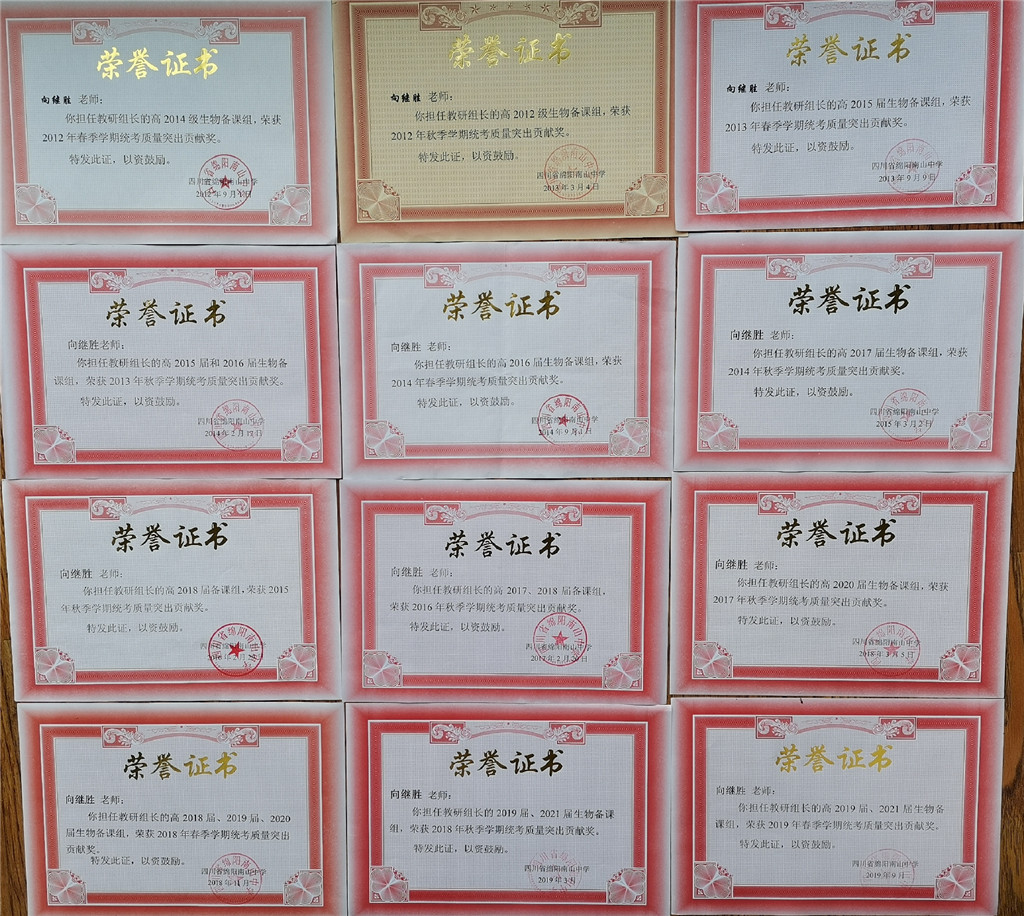 荣誉证书
向继胜 老师：
你担任教研组长的高 2014 级生物备课组，荣获
2012 年春季学期统考质量突出贡献奖。
特发此证，以资鼓励。
四川省绵阳南山中学
荣誉证书
向继胜 老师：
你担任教研组长的高 2012 级生物备课组，荣获
2012 年秋季学期统考质量突出贡献奖。
特发此证，以资鼓励。
四川省绵阳南山中学
2013 年 3 月 4 日
荣誉证书
向继胜 老师：
你担任教研组长的高 2015 届生物备课组，荣获
2013 年春季学期统考质量突出贡献奖。
特发此证，以资鼓励。
四川省绵阳南山中学
2013 年 9 月 9 日
荣誉证书
向继胜老师：
你担任教研组长的高 2015 届和 2016 届生物备
课组，荣获 2013 年秋季学期统考质量突出贡献奖。
特发此证，以资鼓励。
四川省绵阳南山中学
荣誉证书
向继胜 老师：
你担任教研组长的高 2016 届生物备课组，荣获
2014 年春季学期统考质量突出贡献奖。
特发此证，以资鼓励。
四川省绵阳南山中学
荣誉证书
向继胜 老师：
你担任教研组长的高 2017 届生物备课组，荣获
2014 年秋季学期统考质量突出贡献奖。
特发此证，以资鼓励。
四川省绵阳南山中学
2015 年 3 月 2 日
荣誉证书
向继胜 老师：
你担任教研组长的高 2018 届备课组，荣获 2015
年秋季学期统考质量突出贡献奖。
特发此证，以资鼓励。
四川省绵阳南山中学
荣誉证书
向继胜 老师：
你担任教研组长的高 2017、2018 届备课组，
荣获 2016 年秋季学期统考质量突出贡献奖。
特发此证，以资鼓励。
四川省绵阳南山中学
荣誉证书
向继胜 老师：
你担任教研组长的高 2020 届生物备课组，荣获
2017 年秋季学期统考质量突出贡献奖。
特发此证，以资鼓励。
四川省绵阳南山中学
2018 年 3 月 5 日
荣誉证书
向继胜 老师：
你担任教研组长的高 2018 届、2019 届、2020
届生物备课组，荣获 2018 年春季学期统考质量突出
贡献奖。
特发此证，以资鼓励。
四川省绵阳南山中学
2018 年 11 月
荣誉证书
向继胜 老师：
你担任教研组长的 2019 届、2021 届生物备课
组，荣获 2018 年秋季学期统考质量突出贡献奖。
特发此证，以资鼓励。
四川省绵阳南山中学
2019 年 3 月
荣誉证书
向继胜 老师：
你担任教研组长的高 2019 届、2021 届生物备
课组，荣获 2019 年春季学期统考质量突出贡献奖。
特发此证，以资鼓励。
四川省绵阳南山中学
2019 年 9 月